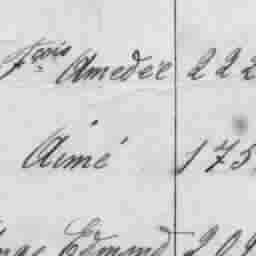 Fçois Amedée 222
Aimé 175
Edmond 202